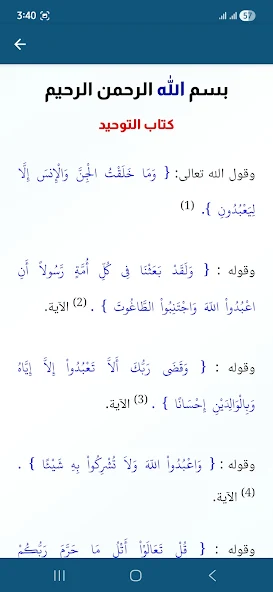 3:40
57
بسم الله الرحمن الرحيم
كتاب التوحيد
وقول الله تعالى: { وَمَا خَلَقْتُ الْجِنَّ وَالْإِنسَ إِلَّا
لِيَعْبُدُونِ }. (1)
وقوله : { وَلَقَدْ بَعَثْنَا فِي كُلِّ أُمَّةٍ رَّسُولاً أَنِ
اعْبُدُواْ اللّهَ وَاجْتَنِبُواْ الطَّاغُوتَ } . (2) الآية.
وقوله : { وَقَضَى رَبُّكَ أَلاَّ تَعْبُدُواْ إِلاَّ إِيَّاهُ
وَبِالْوَالِدَيْنِ إِحْسَانًا } . (3) الآية.
وقوله : { وَاعْبُدُواْ اللّهَ وَلاَ تُشْرِكُواْ بِهِ شَيْئًا } .
(4) الآية.
وقوله : { قُلْ تَعَالَوْاْ أَتْلُ مَا حَرَّمَ رَبُّكُمْ